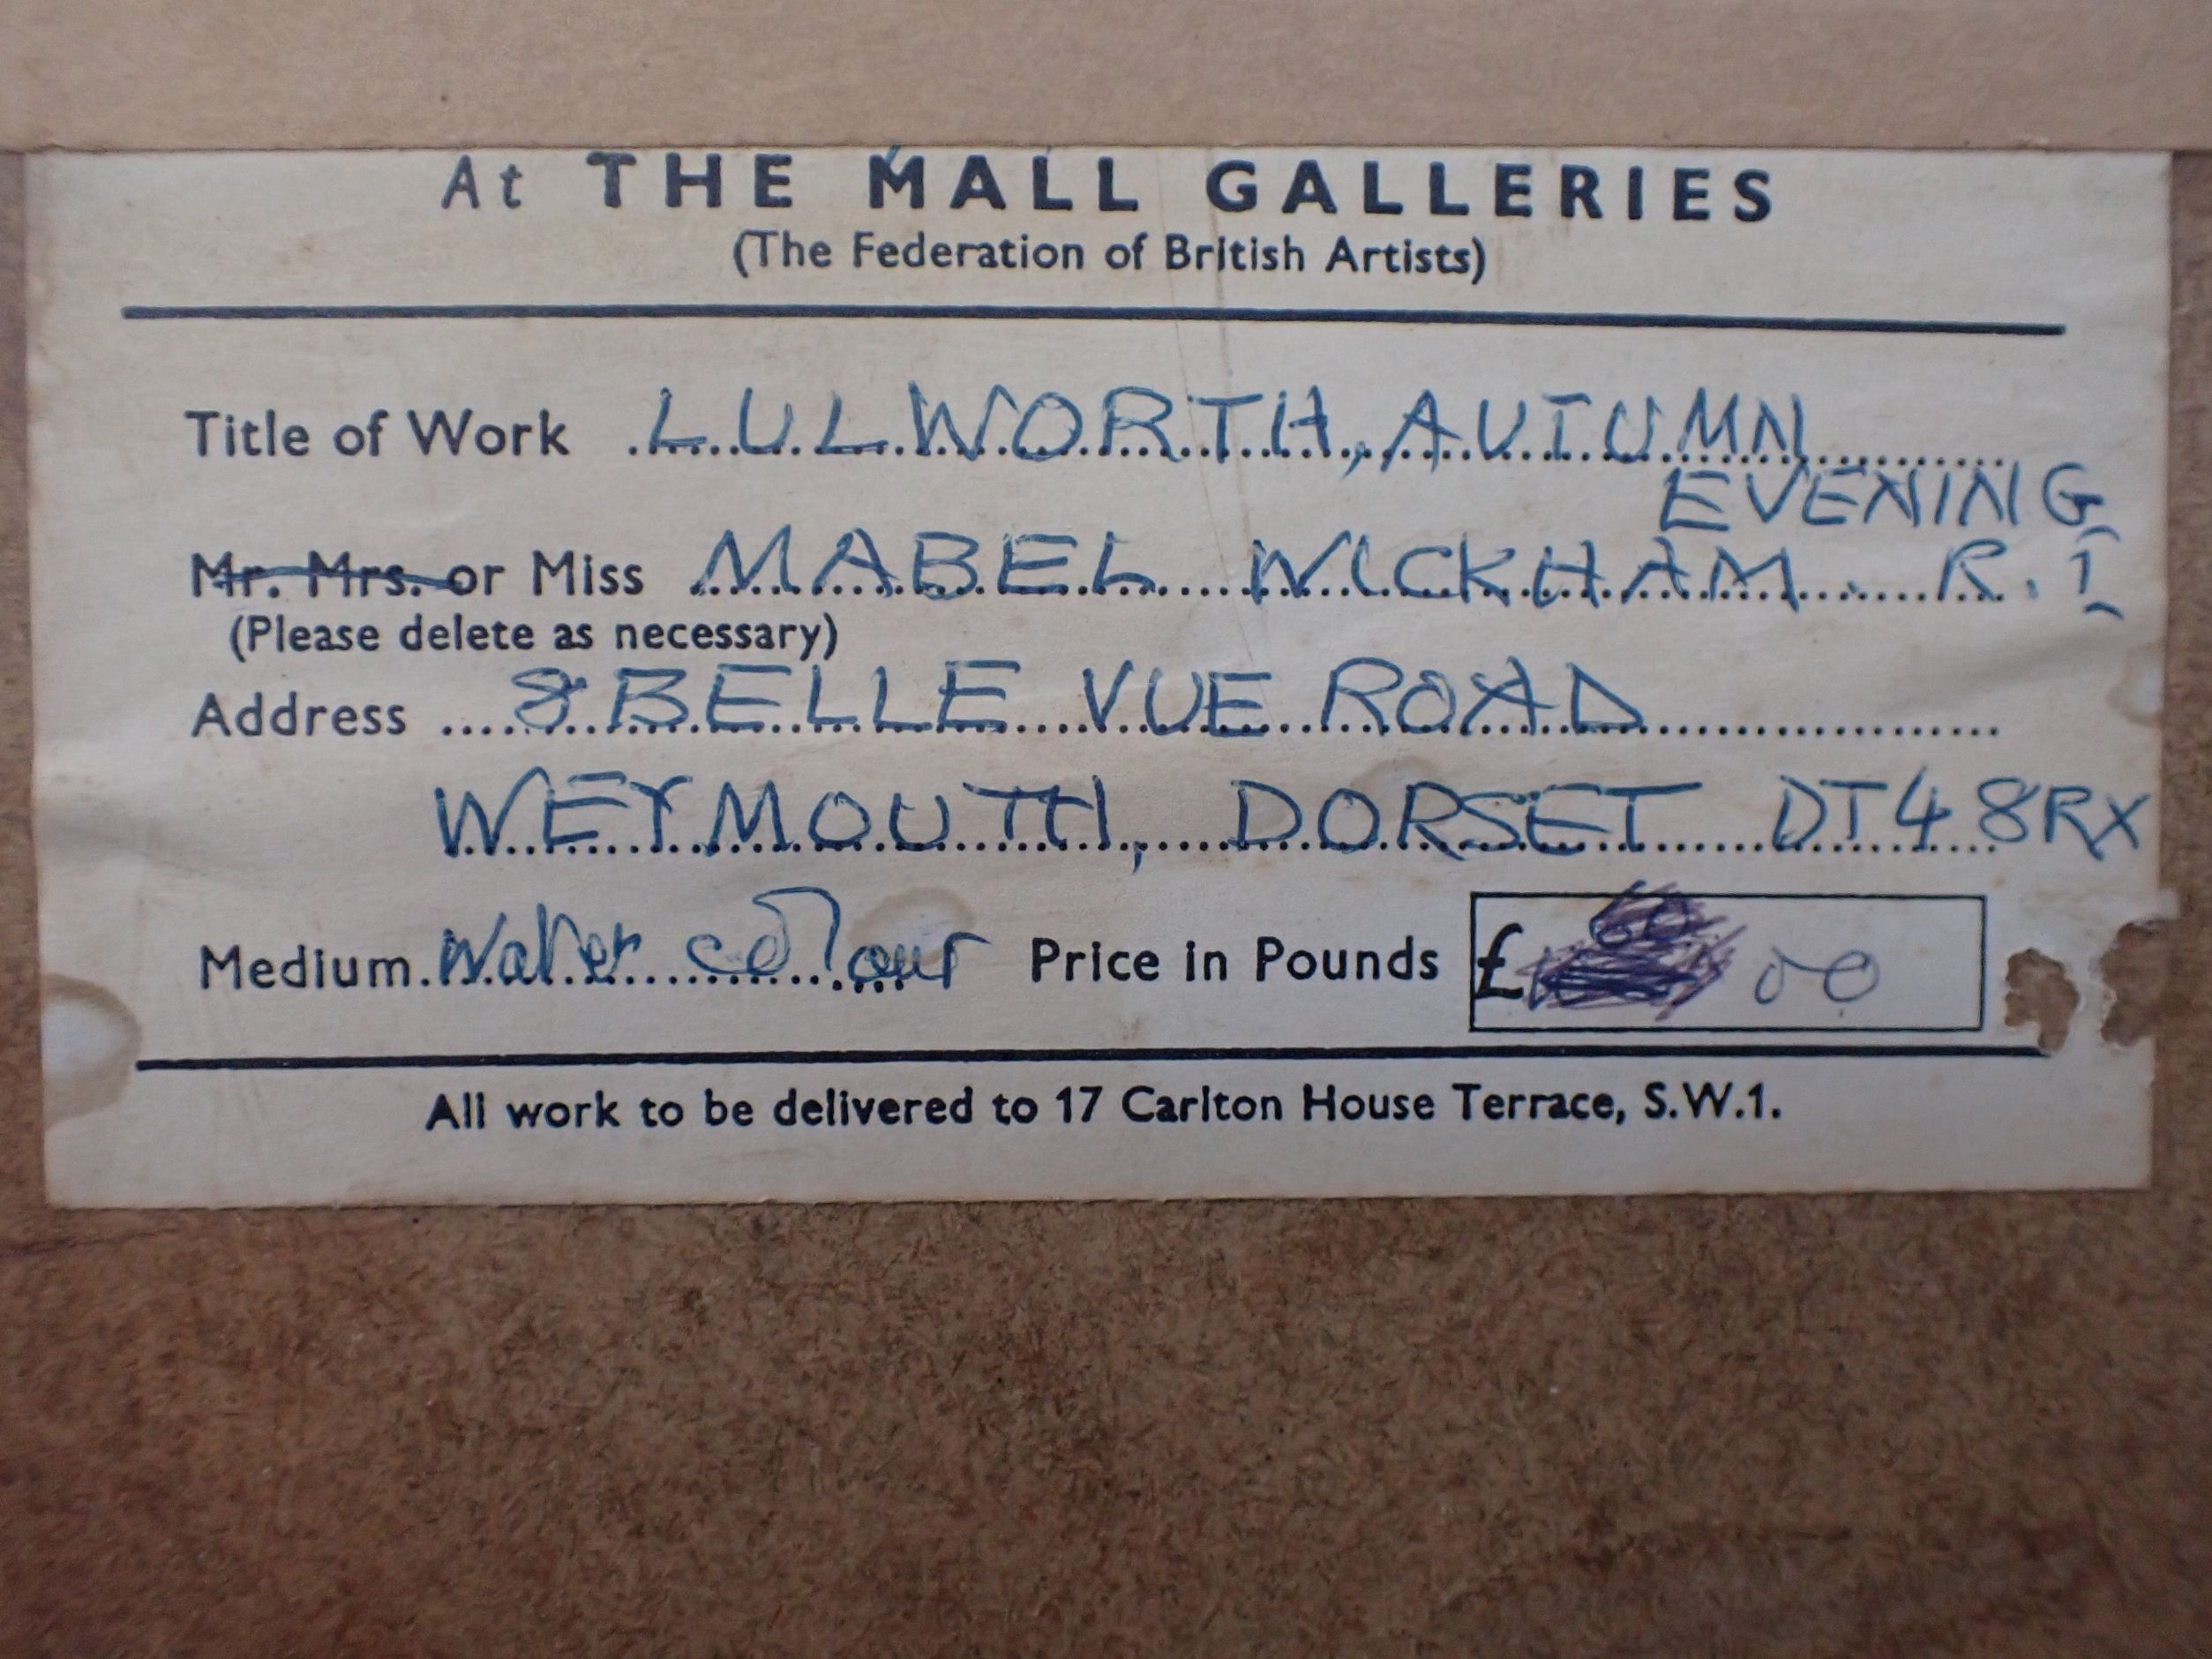 At THE MALL GALLERIES
(The Federation of British Artists)
Title of Work LULWORTH, AUTUMN
EVENING
Mr. Mrs. or Miss MABEL WICKHAM R.I
(Please delete as necessary)
Address 8 BELLE VUE ROAD
WEYMOUTH, DORSET DT4 8RX
Medium Water colour Price in Pounds £ 00
All work to be delivered to 17 Carlton House Terrace, S.W.1.